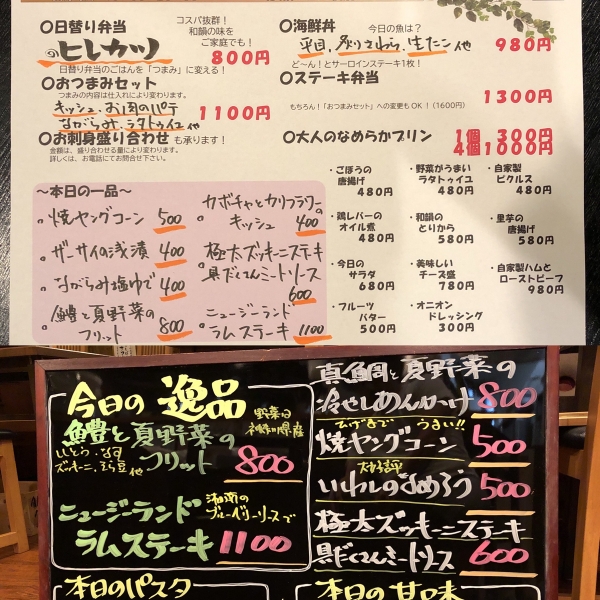 ○日替り弁当
コスパ抜群！
和韻の味を
ご家庭でも！
のヒレカツ
800円
日替り弁当のごはんを「つまみ」に変える！
○おつまみセット
つまみの内容は仕入れにより変わります。
キッシュ、お肉のパテ
ながらみ、ラタトゥイユ 他
1100円
○お刺身盛り合わせ も承ります！
金額は、盛り合わせる量により変わります。
詳しくは、お電話にてお問合せ下さい。
○海鮮丼
今日の魚は？
平目、炙りさわら、生たこ 他
980円
ど〜ん！とサーロインステーキ1枚！
○ステーキ弁当
1300円
もちろん！「おつまみセット」への変更もOK！（1600円）
○大人のなめらかプリン
1個 300円
4個1000円
〜本日の一品〜
焼ヤングコーン 500
ザーサイの浅漬 400
ながらみ塩ゆで 400
鱧と夏野菜の
フリット 800
カボチャとカリフラワーの
キッシュ 400
極太ズッキーニステーキ
具だくさんミートソース
600
ニュージーランド
ラムステーキ 1100
・ごぼうの
唐揚げ
480円
・野菜がうまい
ラタトゥイユ
480円
・自家製
ピクルス
480円
・鶏レバーの
オイル煮
480円
・和韻の
とりから
580円
・里芋の
唐揚げ
580円
・今日の
サラダ
680円
・美味しい
チーズ盛
780円
・自家製ハムと
ローストビーフ
980円
・フルーツ
バター
500円
・オニオン
ドレッシング
300円
今日の 逸品
野菜は
神奈川県産
鱧と夏野菜の
ししとう、なす
ズッキーニ、そら豆 他
フリット 800
ニュージーランド
湘南の
ブルーベリーソースで
ラムステーキ 1100
真鯛と夏野菜の
冷やしあんかけ 800
ひげまで うまい!!
焼ヤングコーン 500
大好評
いわしのなめろう 500
極太ズッキーニステーキ
具だくさんミートソース 600
本日のパスタ
本日の甘味